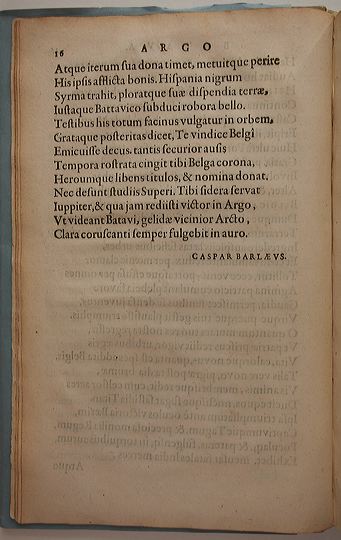 16 ARGO
Atque iterum sua dona timet, metuitque perire
His ipsis afflicta bonis. Hispania nigrum
Syrma trahit, ploratque suæ dispendia terræ,
Iustaque Battavico subduci robora bello.
Testibus his totum facinus vulgatur in orbem,
Grataque posteritas dicet, Te vindice Belgi
Emicuisse decus. tantis securior ausis
Tempora rostrata cingit tibi Belga corona,
Heroumque libens titulos, & nomina donat.
Nec desunt studiis Superi. Tibi sidera servat
Iuppiter, & qua jam rediisti victor in Argo,
Vt videant Batavi, gelidæ vicinior Arcto,
Clara coruscanti semper fulgebit in auro.
CASPAR BARLÆVS.